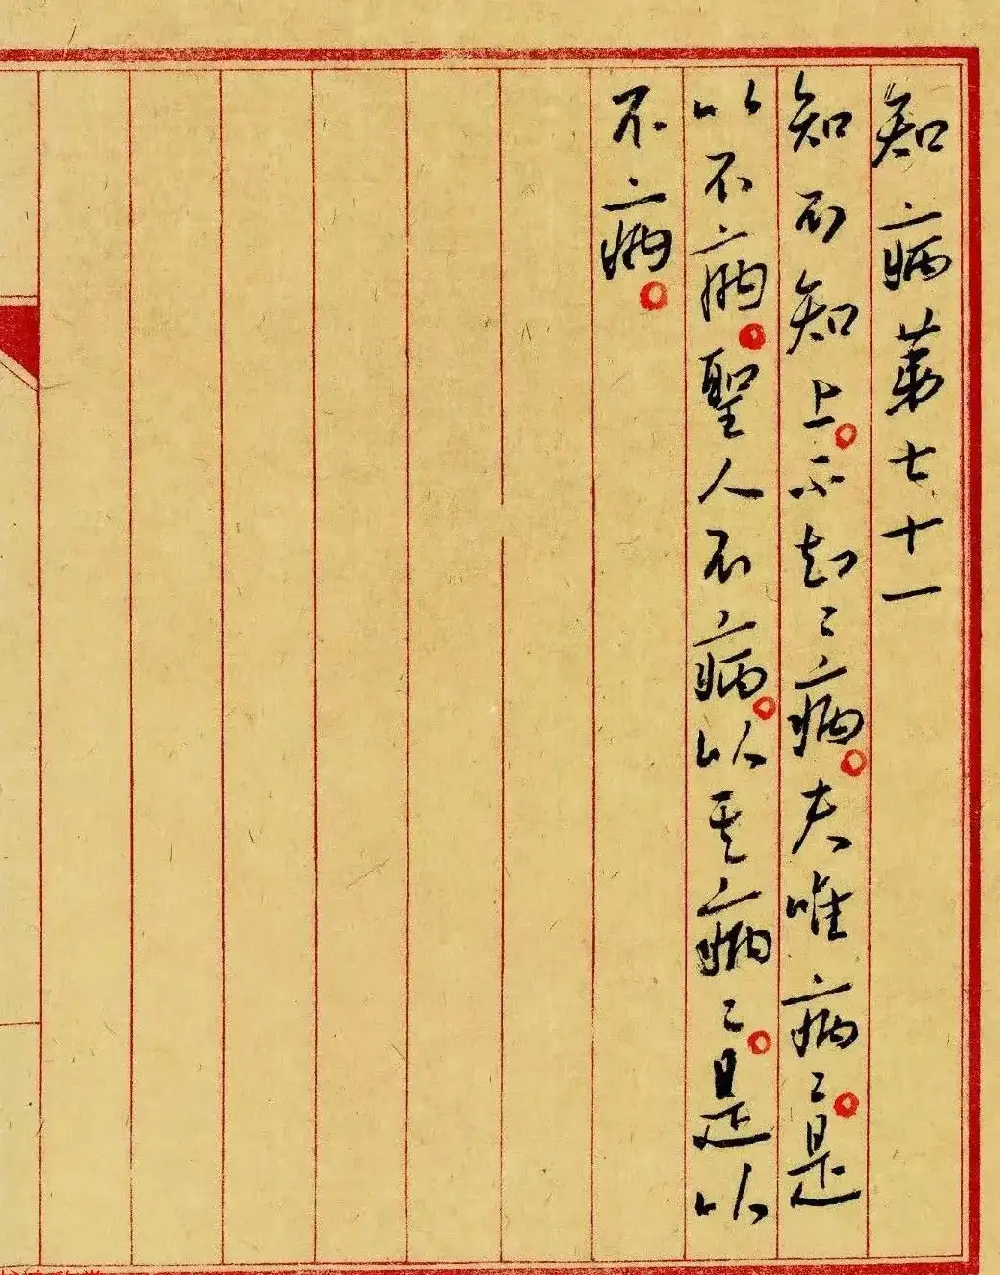 知病第七十一
知不知上。不知〻病。夫唯病〻。是
以不病。聖人不病。以其病〻。是以
不病。